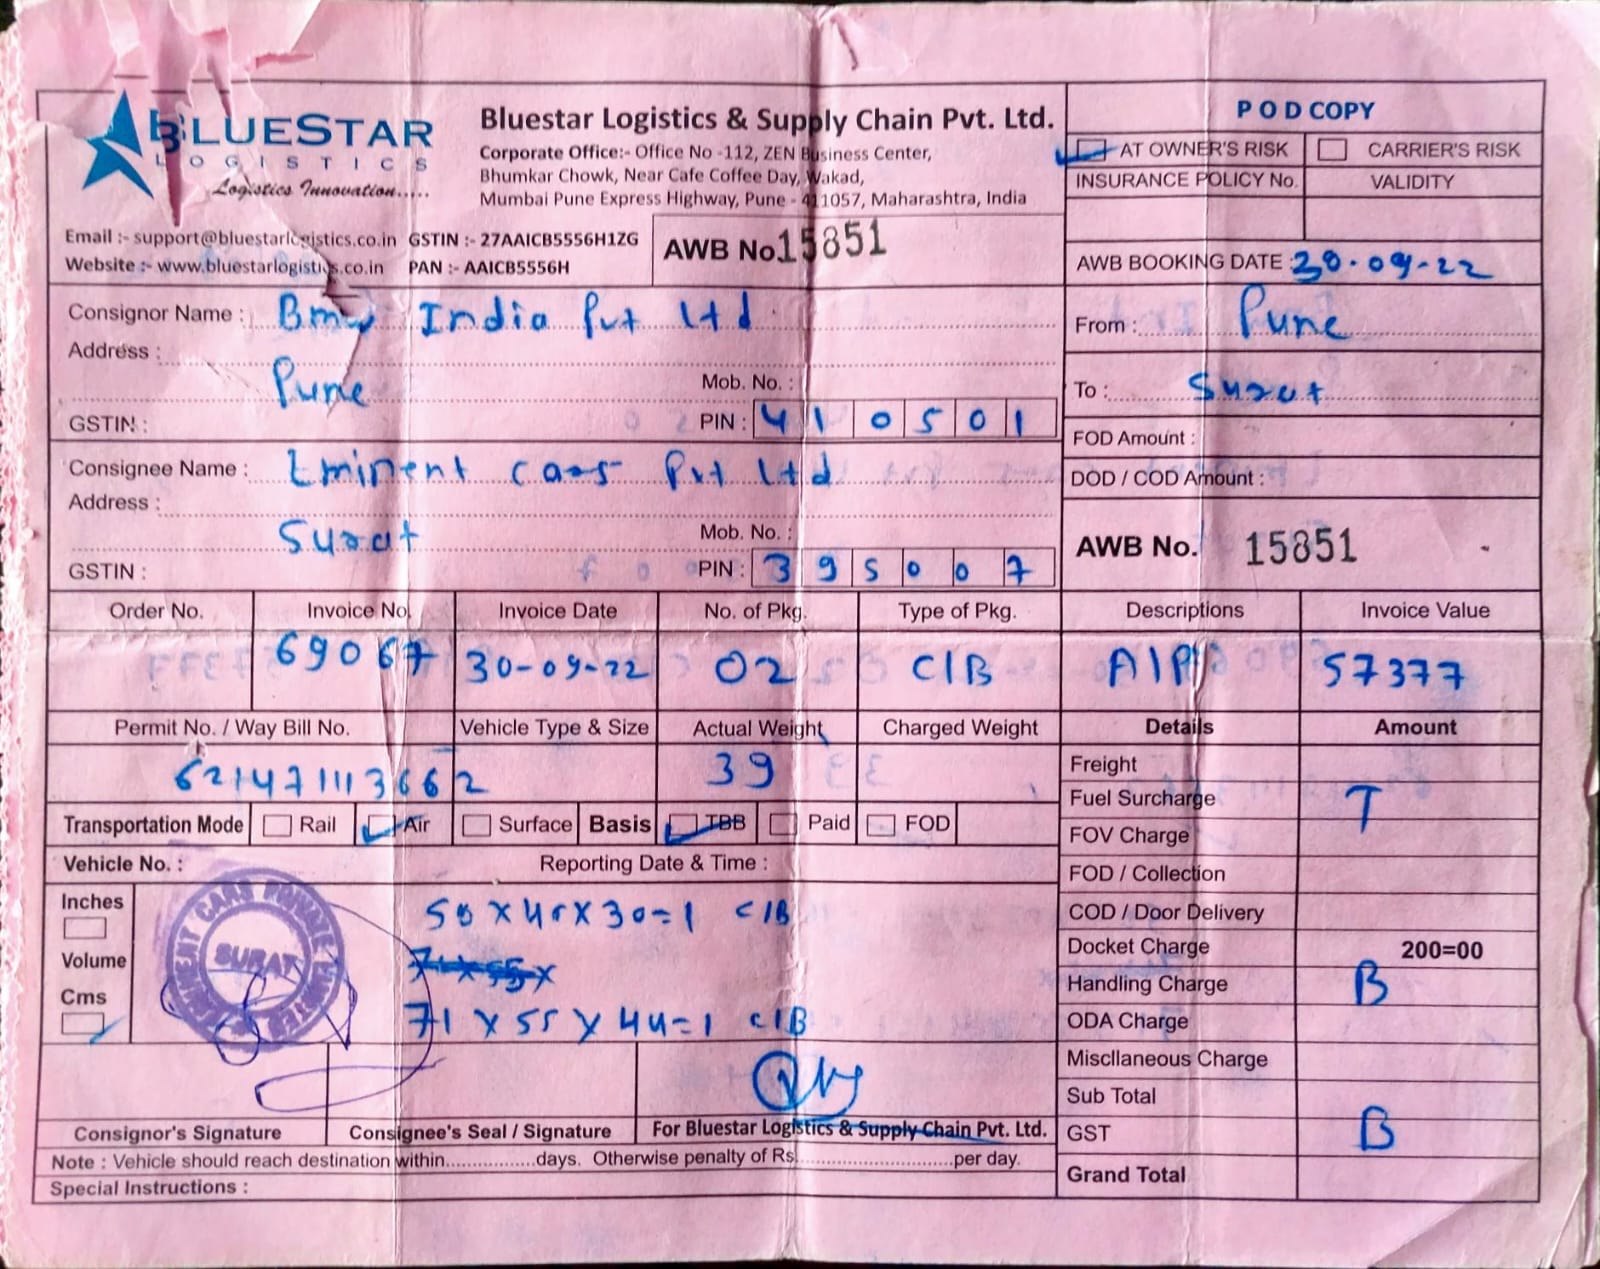 BLUESTAR
LOGISTICS
Logistics Innovation.....
Bluestar Logistics & Supply Chain Pvt. Ltd.
Corporate Office:- Office No -112, ZEN Business Center,
Bhumkar Chowk, Near Cafe Coffee Day, Wakad,
Mumbai Pune Express Highway, Pune - 411057, Maharashtra, India
Email :- support@bluestarlogistics.co.in GSTIN :- 27AAICB5556H1ZG
Website :- www.bluestarlogistics.co.in PAN :- AAICB5556H
AWB No. 15851
POD COPY
AT OWNER'S RISK CARRIER'S RISK
INSURANCE POLICY No. VALIDITY
AWB BOOKING DATE : 30-09-22
Consignor Name : Bmw India Pvt Ltd
Address :
Pune Mob. No. :
GSTIN : PIN : 410501
From : Pune
To : Surat
FOD Amount :
DOD / COD Amount :
Consignee Name : Eminent Cars Pvt Ltd
Address :
Surat Mob. No. :
GSTIN : PIN : 395007
AWB No. 15851
Order No. Invoice No. Invoice Date No. of Pkg. Type of Pkg. Descriptions Invoice Value
69067 30-09-22 02 C/B A/P 57377
Permit No. / Way Bill No. Vehicle Type & Size Actual Weight Charged Weight Details Amount
621471113662 39
Freight
Fuel Surcharge T
FOV Charge
FOD / Collection
COD / Door Delivery
Docket Charge 200=00
Handling Charge B
ODA Charge
Miscllaneous Charge
Sub Total
GST B
Grand Total
Transportation Mode Rail Air Surface Basis TBB Paid FOD
Vehicle No. : Reporting Date & Time :
Inches
Volume
Cms
EMINENT CARS PRIVATE LIMITED
SURAT
50 X 45 X 30 = 1 C/B
71 X 55 X
71 X 55 X 44 = 1 C/B
Consignor's Signature Consignee's Seal / Signature For Bluestar Logistics & Supply Chain Pvt. Ltd.
Note : Vehicle should reach destination within.................days. Otherwise penalty of Rs..............................per day.
Special Instructions :